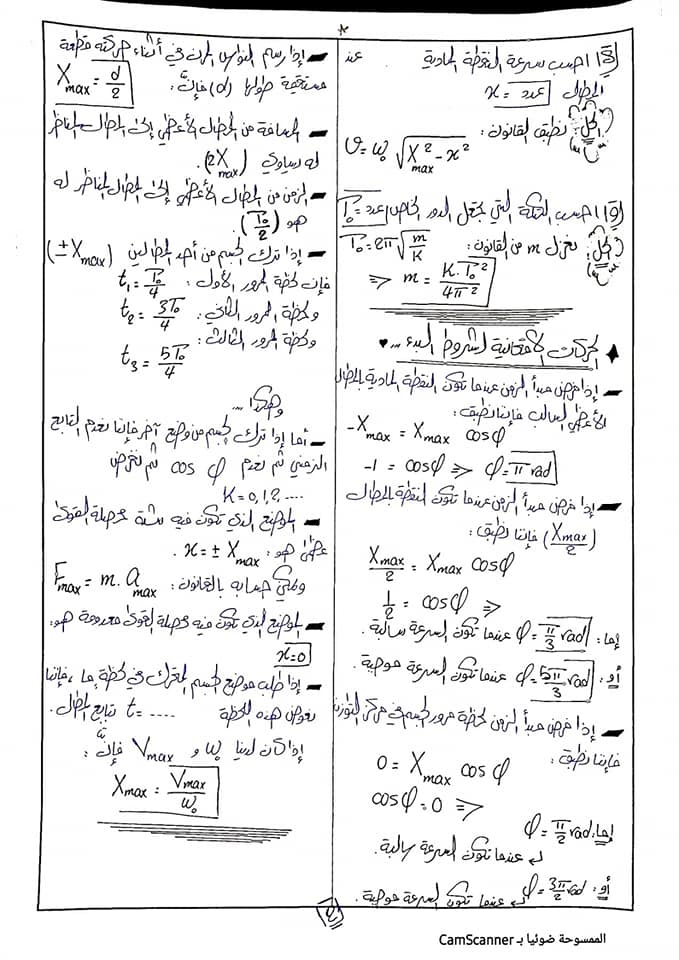 8) احسب سرعة النقطة المادية عند
المطال x = عدد
الحل: نطبق القانون:
v = ω₀ √(X²max - x²)
9) احسب الكتلة التي تجعل الدور الخاص T₀ = عدد
الحل: نعزل m من القانون: T₀ = 2π √(m/K)
⇒ m = K.T₀² / 4π²
♦ الحركات الافتراضية لشروط البدء ...
ـ إذا فرض مبدأ الزمن عندما تكون النقطة المادية بالمطال
الأعظمي السالب فإننا نطبق:
-Xmax = Xmax cosφ
-1 = cosφ ⇒ φ = π rad
ـ إذا فرض مبدأ الزمن عندما تكون النقطة بالمطال
(Xmax/2) فإننا نطبق:
Xmax/2 = Xmax cosφ
1/2 = cosφ ⇒
إما: φ = π/3 rad عندما تكون السرعة سالبة.
أو: φ = 5π/3 rad عندما تكون السرعة موجبة.
ـ إذا فرض مبدأ الزمن لحظة مرور الجسم في مركز التوازن
فإننا نطبق:
0 = Xmax cosφ
cosφ = 0 ⇒
إما: φ = π/2 rad
↵ عندما تكون السرعة سالبة.
أو: φ = 3π/2 rad ↵ عندما تكون السرعة موجبة.
ـ إذا رسم النواس المرن في أثناء حركته قطعة
مستقيمة طولها (d) فإنّ: Xmax = d/2
ـ المسافة من المطال الأعظمي إلى المطال المناظر
له يساوي (2Xmax)
ـ الزمن من المطال الأعظمي إلى المطال المناظر له
هو (T₀/2)
ـ إذا ترك الجسم من أحد المطالين (±Xmax)
فإن لحظة المرور الأول: t₁ = T₀/4
ولحظة المرور الثاني: t₂ = 3T₀/4
ولحظة المرور الثالث:
t₃ = 5T₀/4
وهكذا ...
ـ أما إذا ترك الجسم من وضع آخر فإننا نعدم التابع
الزمني ثم نعدم cosφ ثم نفرض
K = 0,1,2 ....
ـ الموضع الذي تكون فيه شدة محصلة القوى
عظمى هو: x = ± Xmax.
ويمكن حسابه بالقانون: Fmax = m.amax
ـ الموضع الذي تكون فيه محصلة القوى معدومة هو:
x = 0
ـ إذا طلب موضع الجسم المتحرك في لحظة ما، فإننا
نعوض هذه اللحظة t = .... بتابع المطال.
إذا كان لدينا ω₀ و Vmax فإنّ:
Xmax = Vmax / ω₀
الممسوحة ضوئيا بـ CamScanner